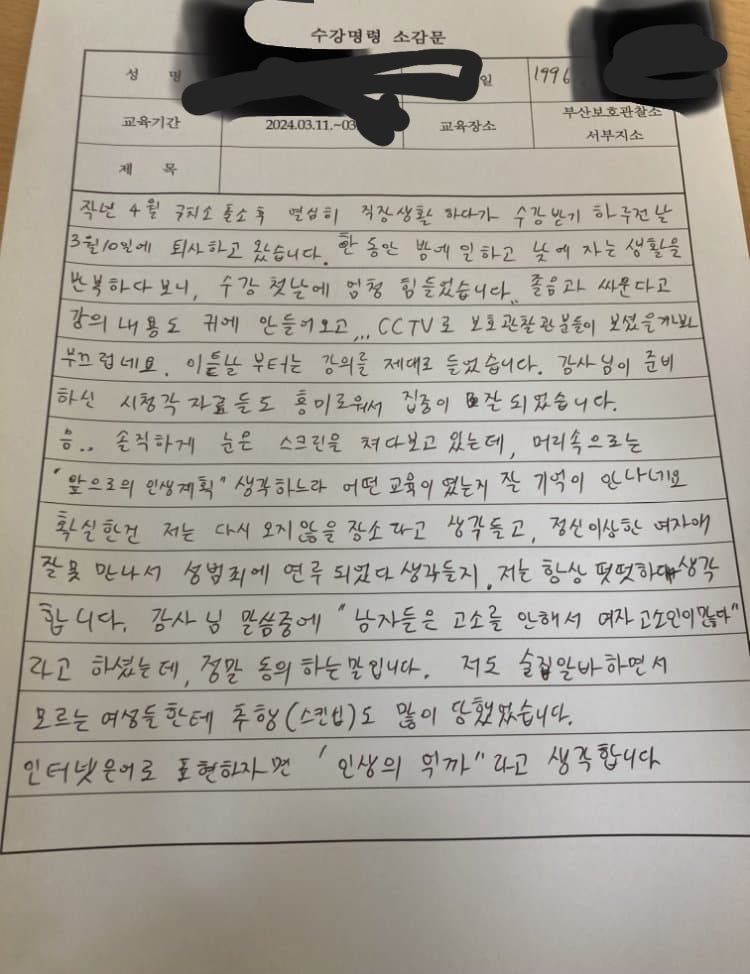 수강명령 소감문
성 명
일
1996
교육기간
2024.03.11.~03
교육장소
부산보호관찰소
서부지소
제 목
작년 4월 구치소 출소 후 열심히 직장생활 하다가 수강받기 하루전날
3월10일에 퇴사하고 왔습니다. 한 동안 밤에 일하고 낮에 자는 생활을
반복하다 보니, 수강 첫날에 엄청 힘들었습니다.. 졸음과 싸운다고
강의 내용도 귀에 안들어오고... CCTV로 보호관찰관분들이 보셨을까봐
부끄럽네요. 이튿날 부터는 강의를 제대로 들었습니다. 강사님이 준비
하신 시청각 자료들도 흥미로워서 집중이 잘 되었습니다.
음.. 솔직하게 눈은 스크린을 쳐다보고 있는데, 머리속으로는
"앞으로의 인생계획" 생각하느라 어떤 교육이였는지 잘 기억이 안나네요
확실한건 저는 다시 오지않을 장소라고 생각들고, 정신이상한 여자애
잘못 만나서 성범죄에 연루 되었다 생각들지, 저는 항상 떳떳하다 생각
합니다. 강사님 말씀중에 "남자들은 고소를 안해서 여자 고소인이 많다"
라고 하셨는데, 정말 동의 하는 말입니다. 저도 술집알바 하면서
모르는 여성들한테 추행(스킨십)도 많이 당했었습니다.
인터넷은어로 표현하자면 '인생의 억까"라고 생각합니다